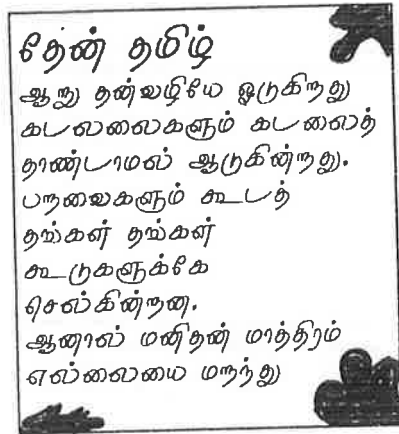 தேன் தமிழ்
ஆறு தன்வழியே ஓடுகிறது
கடலலைகளும் கடலைத்
தாண்டாமல் ஆடுகின்றது.
பறவைகளும் கூடத்
தங்கள் தங்கள்
கூடுகளுக்கே
செல்கின்றன.
ஆனால் மனிதன் மாத்திரம்
எல்லையை மறந்து